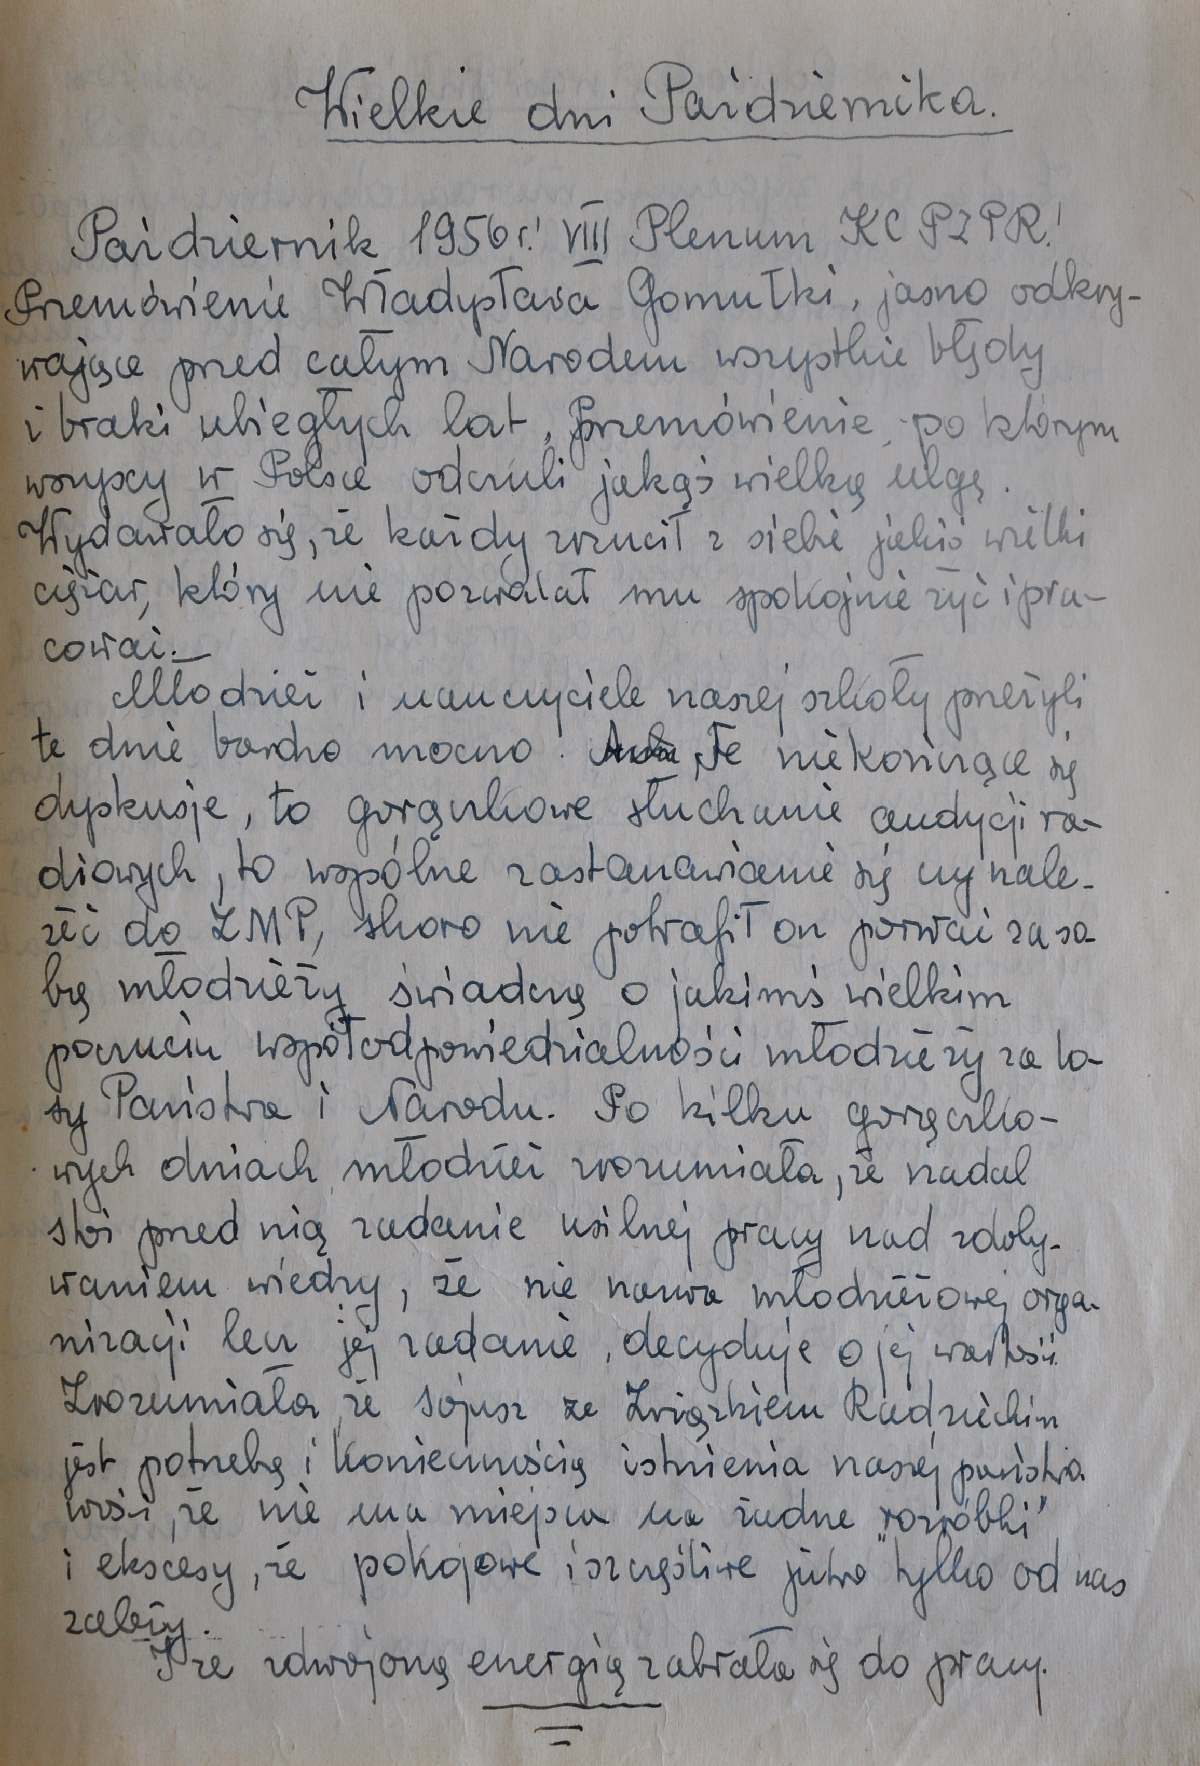 Wielkie dni Października.
Październik 1956 r.! VIII Plenum KC PZPR!
Przemówienie Władysława Gomułki, jasno odkry-
wające przed całym Narodem wszystkie błędy
i braki ubiegłych lat. Przemówienie, po którym
wszyscy w Polsce odczuli jakąś wielką ulgę.
Wydawało się, że każdy zrzucił z siebie jakiś wielki
ciężar, który nie pozwalał mu spokojnie żyć i pra-
cować.—
Młodzież i nauczyciele naszej szkoły przeżyli
te dnie bardzo mocno. Te niekończące się
dyskusje, to gorączkowe słuchanie audycji ra-
diowych, to wspólne zastanawianie się czy nale-
żeć do ZMP, skoro nie potrafił on porwać za so-
bą młodzieży świadczą o jakimś wielkim
poczuciu współodpowiedzialności młodzieży za lo-
sy Państwa i Narodu. Po kilku gorączko-
wych dniach młodzież zrozumiała, że nadal
stoi przed nią zadanie usilnej pracy nad zdoby-
waniem wiedzy, że nie nazwa młodzieżowej orga-
nizacji lecz jej zadanie, decyduje o jej wartości.
Zrozumiała, że sojusz ze Związkiem Radzieckim
jest potrzebą i koniecznością istnienia naszej państwo-
wości, że nie ma miejsca na żadne „rozróbki”
i ekscesy, że pokojowe i szczęśliwe jutro tylko od nas
zależy.
I ze zdwojoną energią zabrała się do pracy.